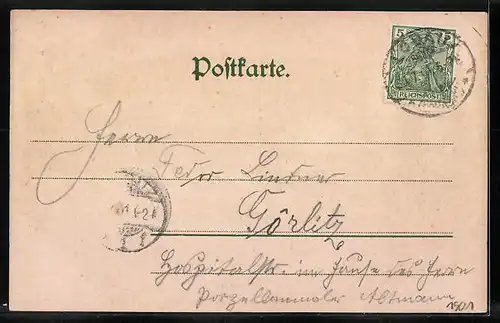 5
REICHSPOST
Postkarte.
Herrn
Fedor Lindner
Görlitz
Hospitalstr. im Hause des Herrn
Porzellanmaler Altmann
1901